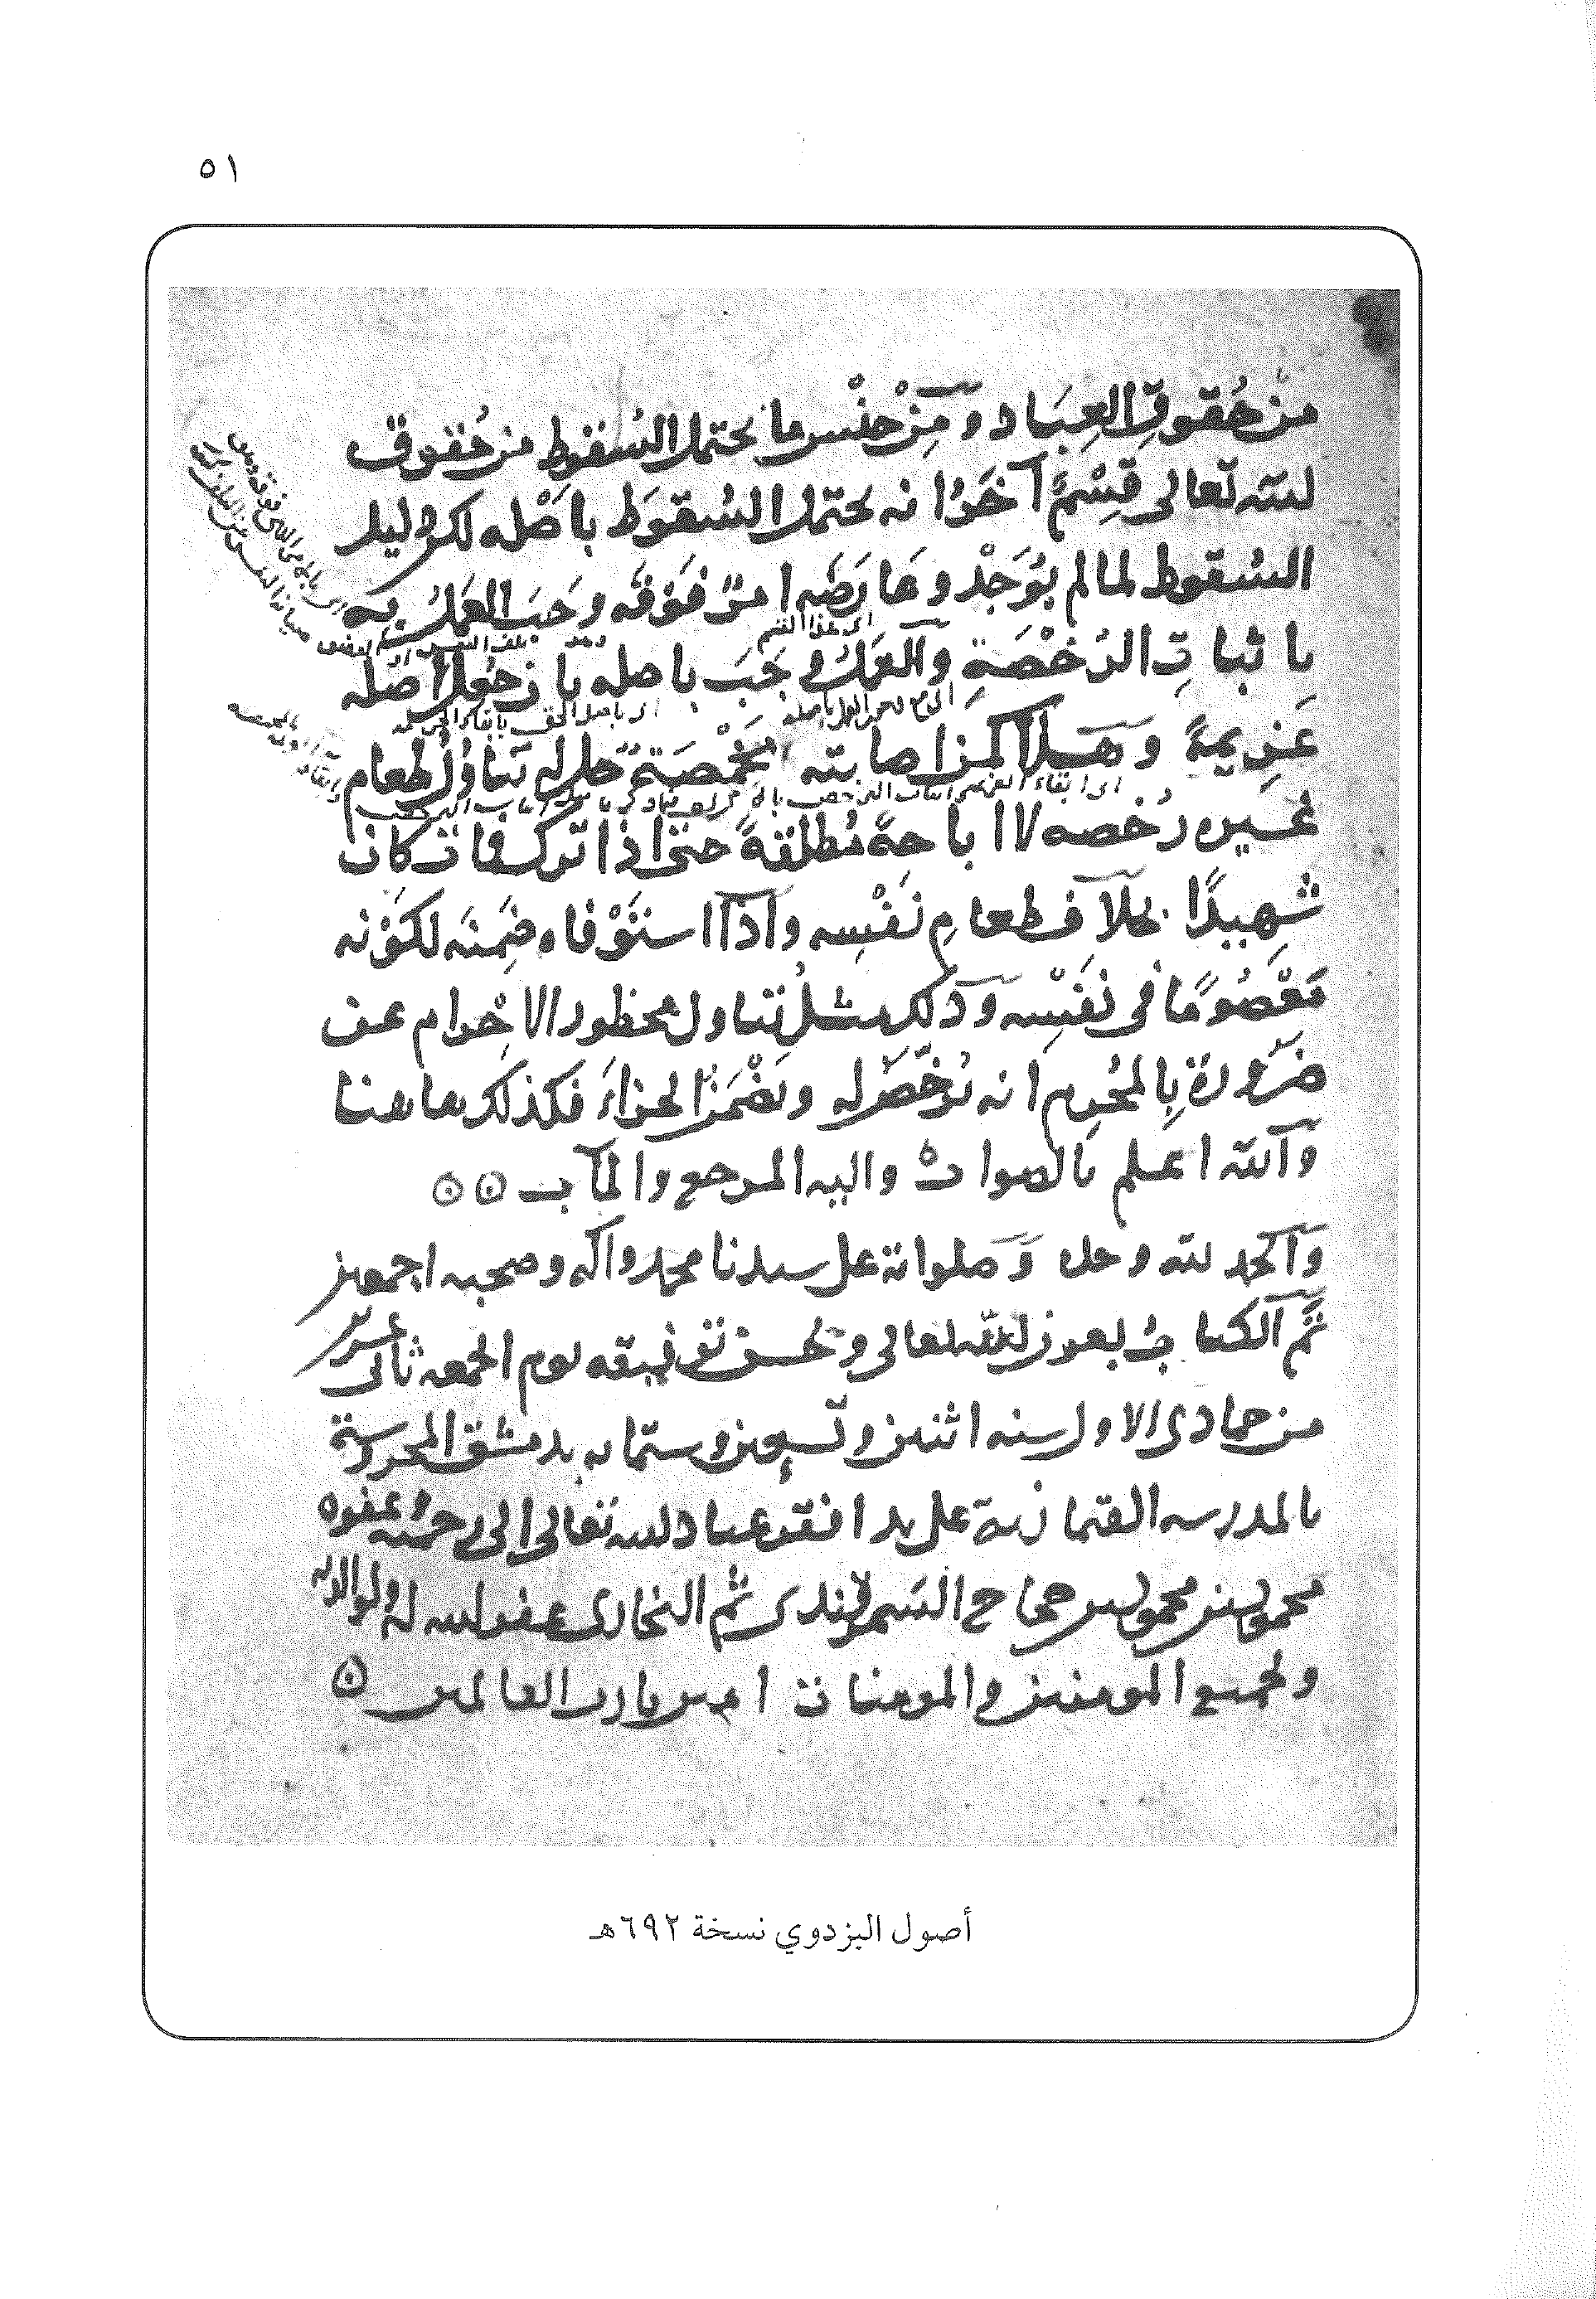 ٥١
من حقوق العباد ومن جنس ما يحتمل السقوط من حقوق
لله تعالى قسم آخر انه يحتمل السقوط باصله لكن دليل
السقوط لما لم يوجد وعارضه امر فوقه وجب العمل به
باثبات الرخصة والعمل وجب باصله بان جعل اصله
عزيمة وهذا كمن اصابته مخمصة حل له تناول طعام
غيره رخصه لا اباحة مطلقة حتى اذا ترك فمات كان
شهيدًا بخلاف طعام نفسه واذا استوفاه ضمنه لكونه
معصومًا في نفسه وذلك مثل تناول محظور الاحرام عن
ضرورة بالمحرم انه يرخص له ويضمن الجزاء فكذلك هاهنا
والله اعلم بالصواب واليه المرجع والمآب
والحمد لله وحده وصلواته على سيدنا محمد وآله وصحبه اجمعين
تم الكتاب بعون الله تعالى وبحسن توفيقه يوم الجمعه ثاني عشر
من جمادى الاول سنه اثنين وتسعين وستمايه بدمشق المحروسة
بالمدرسه القيمازية على يد افقر عباد الله تعالى الى رحمته وعفوه
محمود بن محمود بن حجاج السمرقندى ثم البخارى غفر الله له ولوالديه
ولجميع المومنين والمومنات امين يا رب العالمين
أصول البزدوي نسخة ٦٩٢هـ